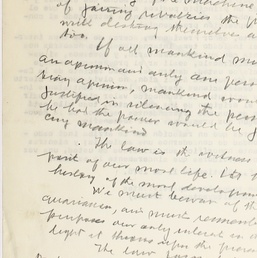 of gaining
will destroy themselves
too.
If all mankind
an opinion and only one
opinion, mankind would
justified in silencing the
he had the power would be
mankind
The law is the witness
of our moral life. Its
history of the moral development
We must beware of the
and must remember
purposes our only interest in
light it throws upon the
The law